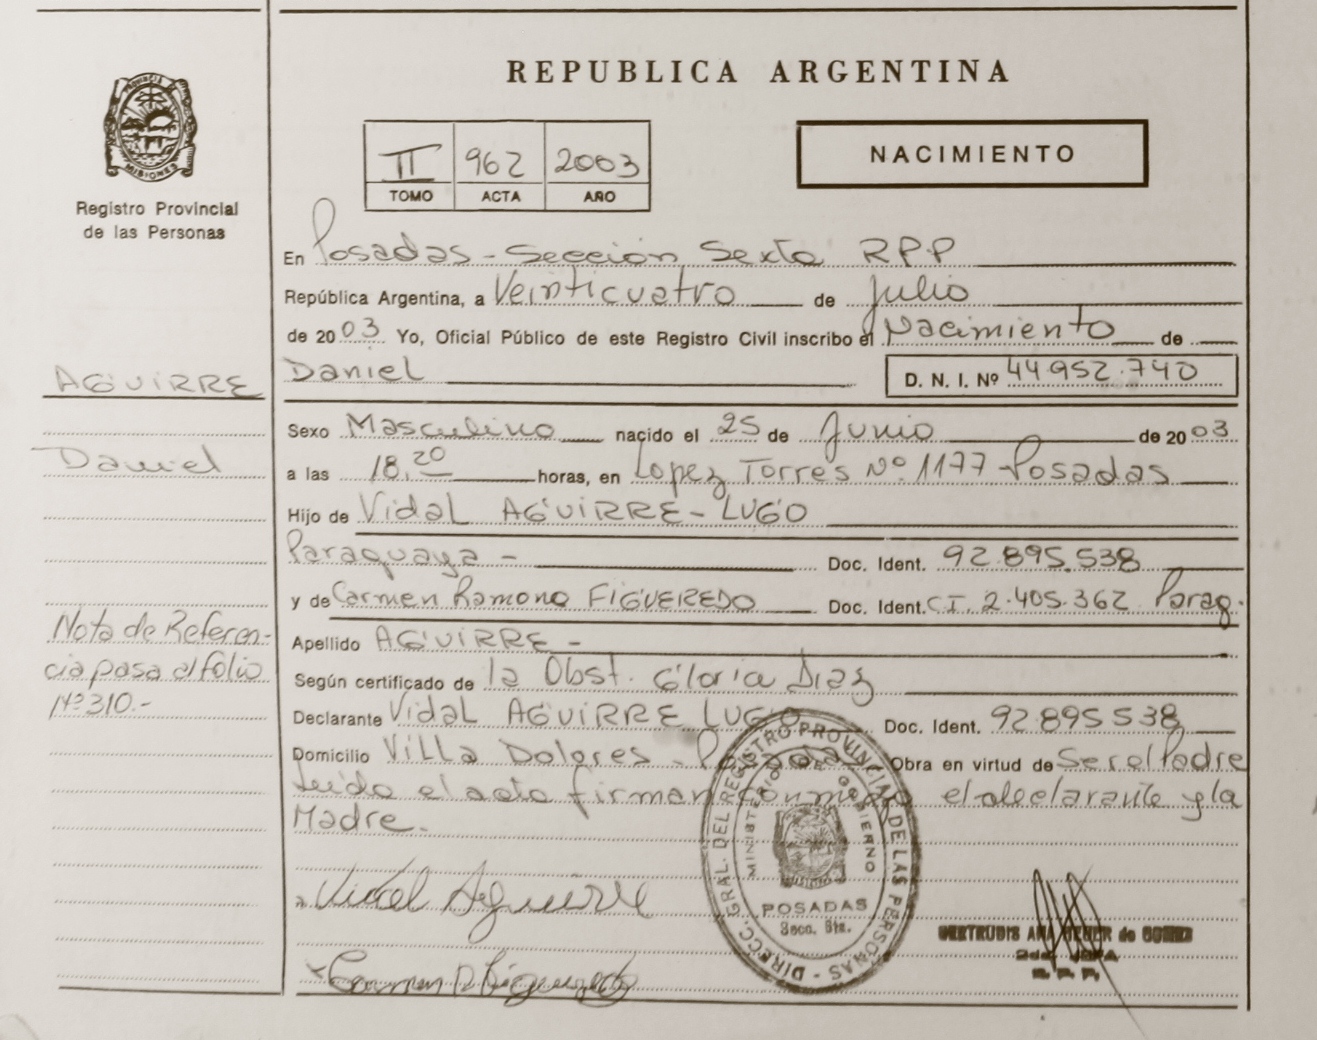 REPUBLICA ARGENTINA
PROVINCIA DE
MISIONES
Registro Provincial
de las Personas
II 962 2003
TOMO ACTA AÑO
NACIMIENTO
En Posadas - Sección Sexta RPP
República Argentina, a Veinticuatro de Julio
de 2003 Yo, Oficial Público de este Registro Civil inscribo el Nacimiento de
Daniel D. N. I. Nº 44.952.740
AGUIRRE
Daniel
Sexo Masculino nacido el 25 de Junio de 2003
a las 18,20 horas, en Lopez Torres Nº 1177 - Posadas
Hijo de Vidal AGUIRRE - LUGO
Paraguaya - Doc. Ident. 92.895.538
y de Carmen Ramona FIGUEREDO Doc. Ident. C.I. 2.405.362 Parag.
Nota de Referen-
cia pasa al folio
Nº 310.-
Apellido AGUIRRE -
Según certificado de la Obst. Gloria Diaz
Declarante Vidal AGUIRRE LUGO Doc. Ident. 92895538
Domicilio Villa Dolores - Posadas Obra en virtud de Ser el Padre
Leído el acta firman conmigo el declarante y la
Madre.
Vidal Aguirre
Carmen R Figueredo
DIRECC. GRAL. DEL REGISTRO PROVINCIAL DE LAS PERSONAS -
MINISTERIO DE GOBIERNO
POSADAS
Secc. 6ta.
GERTRUDIS de
2da. JEFA
R. P. P.